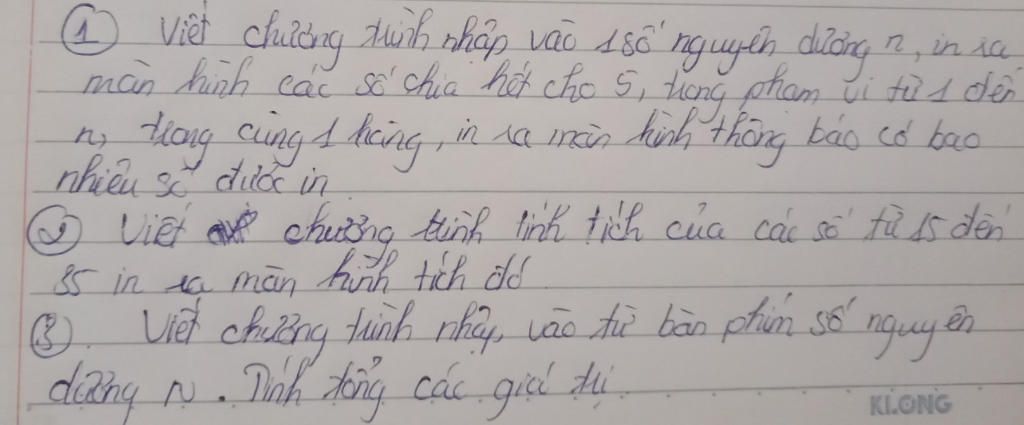 ① Viết chương trình nhập vào 1 số nguyên dương n, in ra
màn hình các số chia hết cho 5, trong phạm vi từ 1 đến
n, trong cùng 1 hàng, in ra màn hình thông báo có bao
nhiêu số được in
② Viết chương trình tính tích của các số từ 15 đến
35 in ra màn hình tích đó
③. Viết chương trình nhập vào từ bàn phím số nguyên
dương N. Tính tổng các giá trị.
KLONG